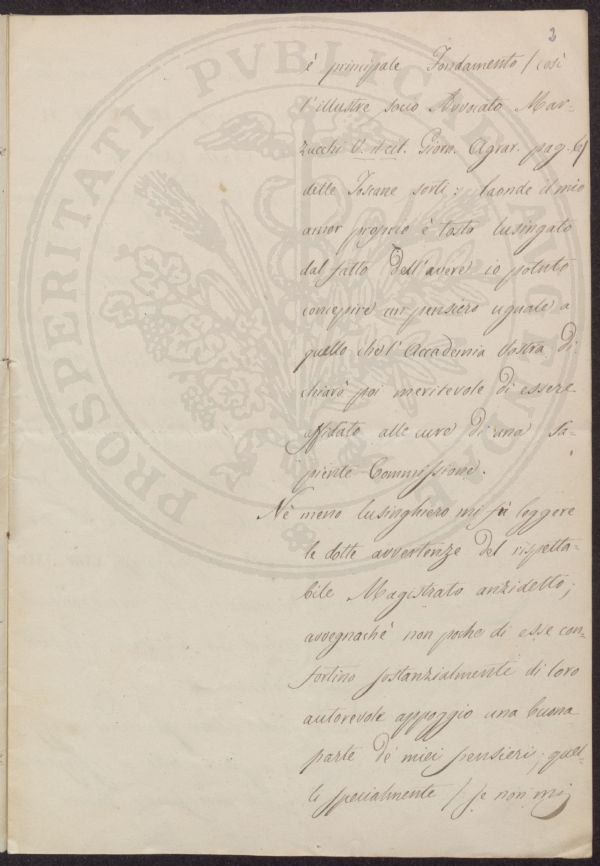 2
è principale Fondamento / così
l'illustre socio Avvocato Mar-
zucchi V. il cit. Giorn. Agrar. pag. 6/
delle Toscane sorti; laonde il mio
amor proprio è tosto lusingato
dal fatto dell'avere io potuto
concepire un pensiero uguale a
quello che l'Accademia Vostra di-
chiarò poi meritevole di essere
affidato alle cure di una Sa-
piente Commissione.
Nè meno lusinghiero mi fù leggere
le dotte avvertenze del rispetta-
bile Magistrato anzidetto;
avvegnachè non poche di esse con-
fortino sostanzialmente di loro
autorevole appoggio una buona
parte de' miei pensieri; quel-
li specialmente / se non mi
PROSPERITATI PVBLICAE AVGENDAE